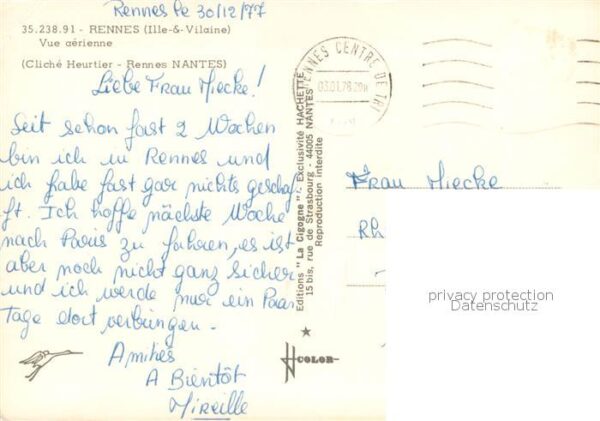 Rennes le 30/12/77
35.238.91 - RENNES (Ille-&-Vilaine)
Vue aérienne
(Cliché Heurtier - Rennes NANTES)
Liebe Frau Miecke!
Seit schon fast 2 Wochen
bin ich in Rennes und
ich habe fast gar nichts geschaf
ft. Ich hoffe nächste Woche
nach Paris zu fahren, es ist
aber noch nicht ganz sicher
und ich werde nur ein Paar
Tage dort verbringen.
Amitiés
A Bientôt
Mireille
Editions "La Cigogne" - Exclusivité HACHETTE
15 bis, rue de Strasbourg - 44005 NANTES
Reproduction interdite
COLOR
RENNES CENTRE DE TRI
03.01.78
Frau Miecke
Rh
privacy protection
Datenschutz